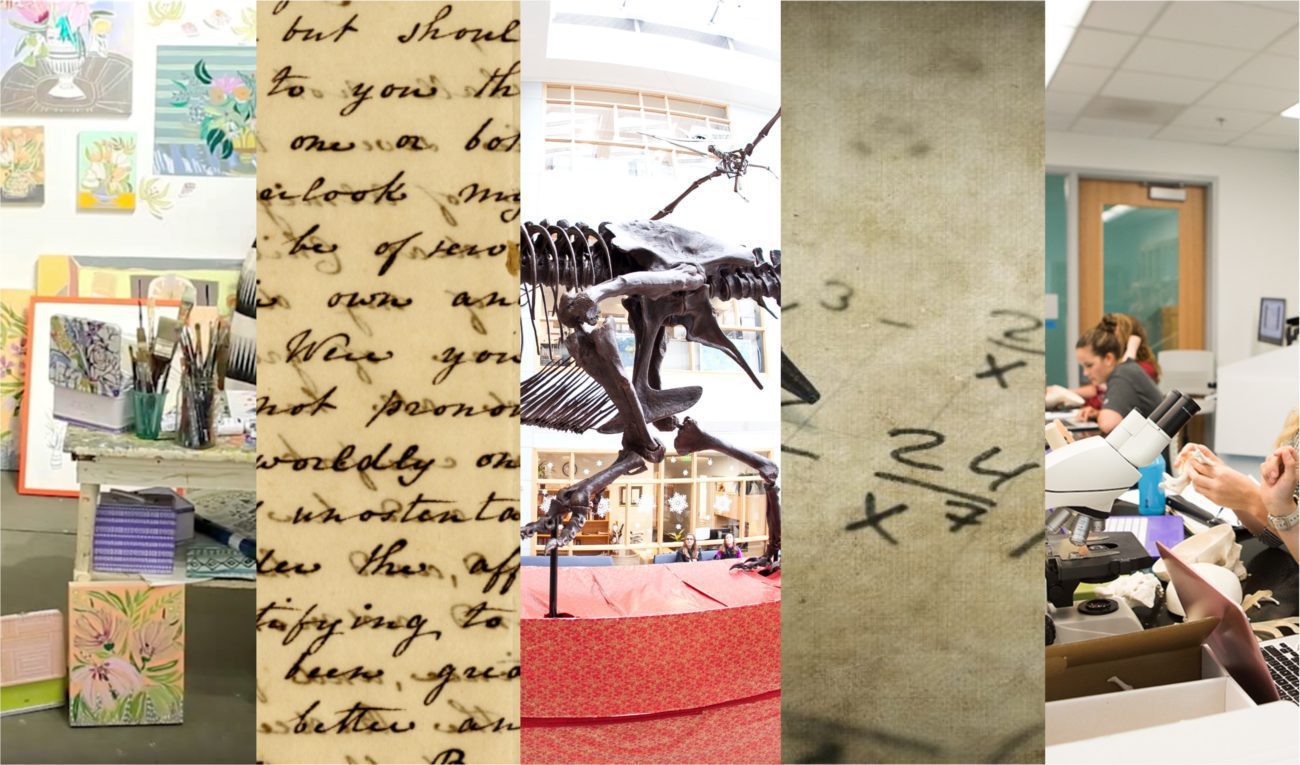 but shoul
to you th
one or bot
erlook my
be of serv
own an
Were you
not pronou
worldly on
unostenta
der the, aff
tifying to
been, grea
better an
B
3 -
2
x
2 4
x 7